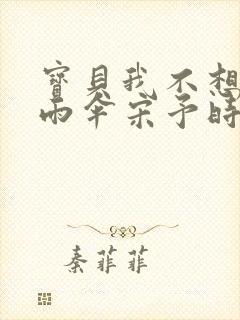 寶貝我不想
雨傘宋予時
秦菲菲